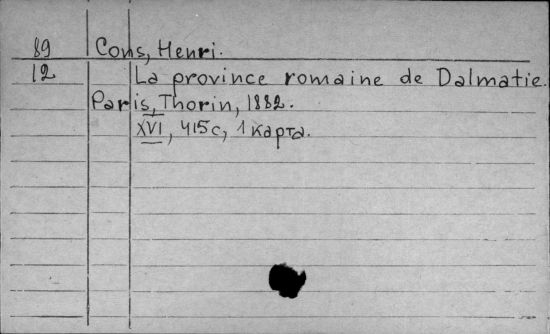 89 Cons, Henri.
12 La province romaine de Dalmatie.
Paris, Thorin, 1882.
XVI, 415с, 1 карта.